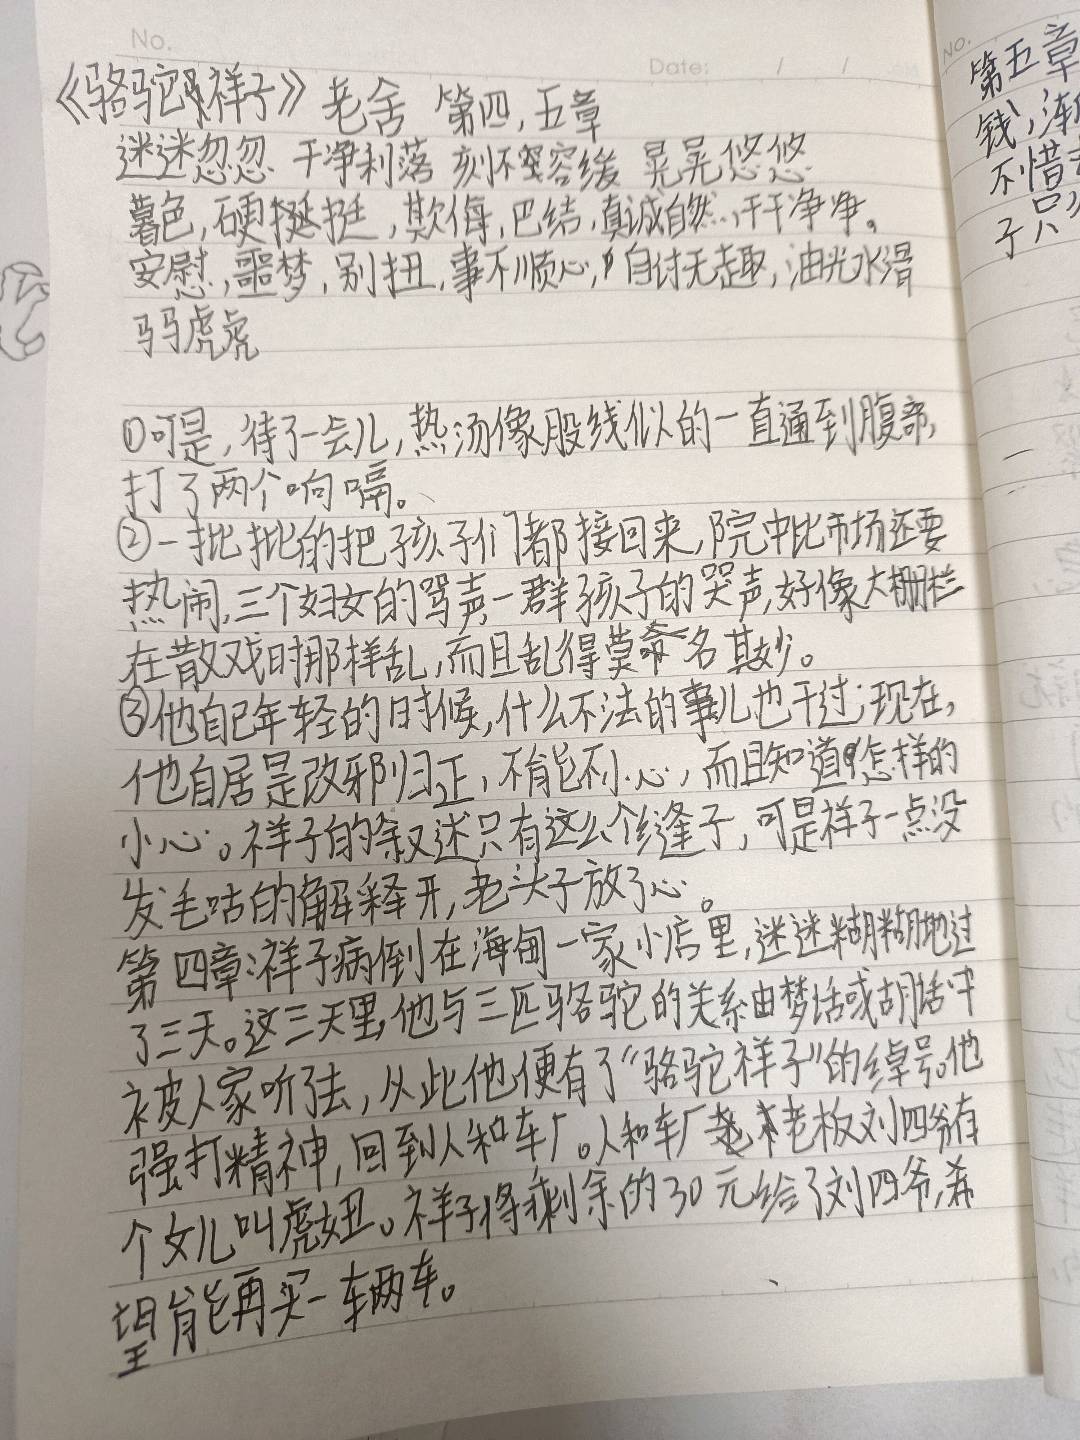 No.
Date: / /
《骆驼祥子》老舍 第四,五章
迷迷忽忽 干净利落 刻不容缓 晃晃悠悠
暮色,硬挺挺,欺侮,巴结,真诚自然,干干净净。
安慰,噩梦,别扭,事不顺心,自讨无趣,油光水滑
马马虎虎
①可是,待了一会儿,热汤像股线似的一直通到腹部,
打了两个响嗝。
②一批批的把孩子们都接回来,院中比市场还要
热闹,三个妇女的骂声,一群孩子的哭声,好像大栅栏
在散戏时那样乱,而且乱得莫名其妙。
③他自己年轻的时候,什么不法的事儿也干过;现在,
他自居是改邪归正,不能不小心,而且知道怎样的
小心。祥子的叙述只有这么个缝子,可是祥子一点没
发毛咕的解释开,老头子放了心。
第四章:祥子病倒在海甸一家小店里,迷迷糊糊地过
了三天。这三天里,他与三匹骆驼的关系由梦话或胡话中
被人家听了去,从此他便有了“骆驼祥子”的绰号。他
强打精神,回到人和车厂。人和车厂老板刘四爷有
个女儿叫虎妞。祥子将剩余的30元给了刘四爷,希
望能再买一车两车。
No.
第五章
钱,渐
不惜
子只